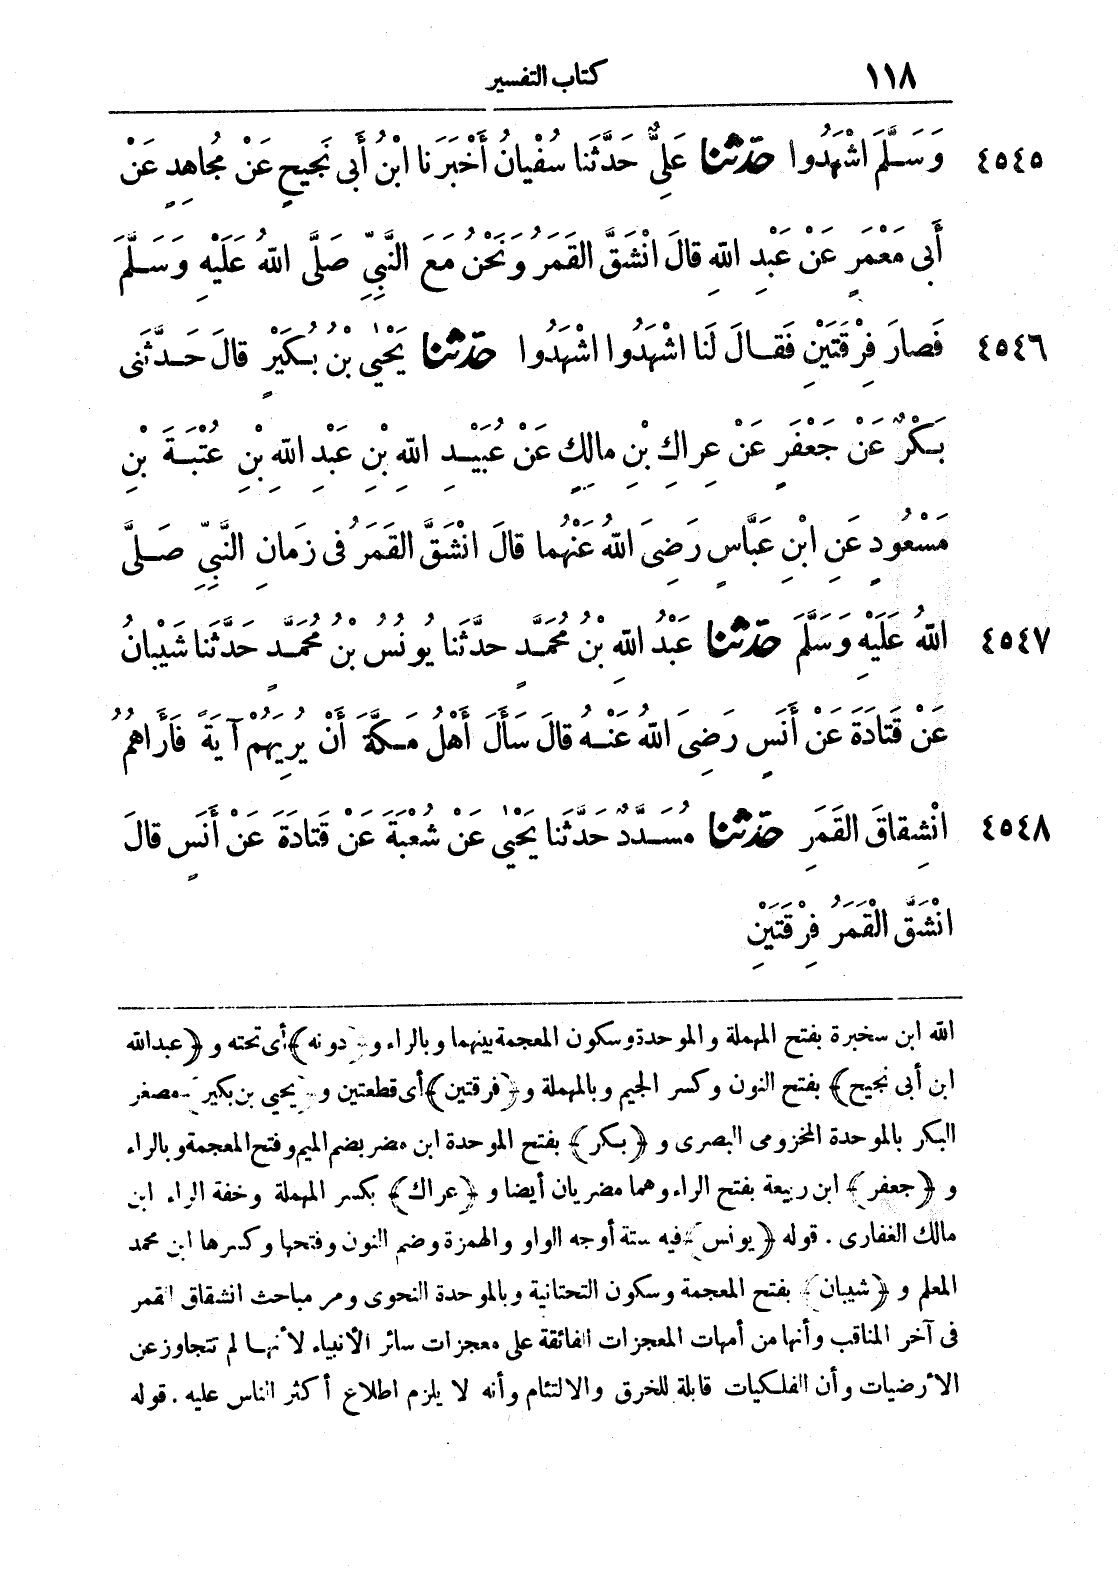 ١١٨ كتاب التفسير
٤٥٤٥ وَسَلَّمَ اشْهَدُوا حدّثنا عَلِيٌّ حَدَّثَنَا سُفْيَانُ أَخْبَرَنَا ابْنُ أَبِى نَجِيحٍ عَنْ مُجَاهِدٍ عَنْ
أَبِى مَعْمَرٍ عَنْ عَبْدِ اللهِ قَالَ انْشَقَّ القَمَرُ وَنَحْنُ مَعَ النَّبِيِّ صَلَّى اللهُ عَلَيْهِ وَسَلَّمَ
٤٥٤٦ فَصَارَ فِرْقَتَيْنِ فَقَالَ لَنَا اشْهَدُوا اشْهَدُوا حدّثنا يَحْيَى بْنُ بُكَيْرٍ قَالَ حَدَّثَنِى
بَكْرٌ عَنْ جَعْفَرٍ عَنْ عِرَاكِ بْنِ مَالِكٍ عَنْ عُبَيْدِ اللهِ بْنِ عَبْدِ اللهِ بْنِ عُتْبَةَ بْنِ
مَسْعُودٍ عَنِ ابْنِ عَبَّاسٍ رَضِىَ اللهُ عَنْهُمَا قَالَ انْشَقَّ القَمَرُ فِى زَمَانِ النَّبِيِّ صَلَّى
٤٥٤٧ اللهُ عَلَيْهِ وَسَلَّمَ حدّثنا عَبْدُ اللهِ بْنُ مُحَمَّدٍ حَدَّثَنَا يُونُسُ بْنُ مُحَمَّدٍ حَدَّثَنَا شَيْبَانُ
عَنْ قَتَادَةَ عَنْ أَنَسٍ رَضِىَ اللهُ عَنْهُ قَالَ سَأَلَ أَهْلُ مَكَّةَ أَنْ يُرِيَهُمْ آيَةً فَأَرَاهُمُ
٤٥٤٨ انْشِقَاقَ القَمَرِ حدّثنا مُسَدَّدٌ حَدَّثَنَا يَحْيَى عَنْ شُعْبَةَ عَنْ قَتَادَةَ عَنْ أَنَسٍ قَالَ
انْشَقَّ الْقَمَرُ فِرْقَتَيْنِ
الله ابن سخبرة بفتح المهملة والموحدة وسكون المعجمة بينهما وبالراء و﴿دونه﴾ أى تحته و﴿عبدالله
ابن أبى نجيح﴾ بفتح النون وكسر الجيم وبالمهملة و﴿فرقتين﴾ أى قطعتين و﴿يحيى بن بكير﴾ مصغر
البكر بالموحدة المخزومى البصرى و﴿بكر﴾ بفتح الموحدة ابن مضر بضم الميم وفتح المعجمة وبالراء
و﴿جعفر﴾ ابن ربيعة بفتح الراء وهما مضريان أيضا و﴿عراك﴾ بكسر المهملة وخفة الراء ابن
مالك الغفارى . قوله ﴿يونس﴾ فيه ستة أوجه الواو والهمزة وضم النون وفتحها وكسرها ابن محمد
المعلم و﴿شيبان﴾ بفتح المعجمة وسكون التحتانية وبالموحدة النحوى ومر مباحث انشقاق القمر
فى آخر المناقب وأنها من أمهات المعجزات الفائقة على معجزات سائر الأنبياء لأنها لم تتجاوز عن
الأرضيات وأن الفلكيات قابلة للخرق والالتئام وأنه لا يلزم اطلاع أكثر الناس عليه . قوله